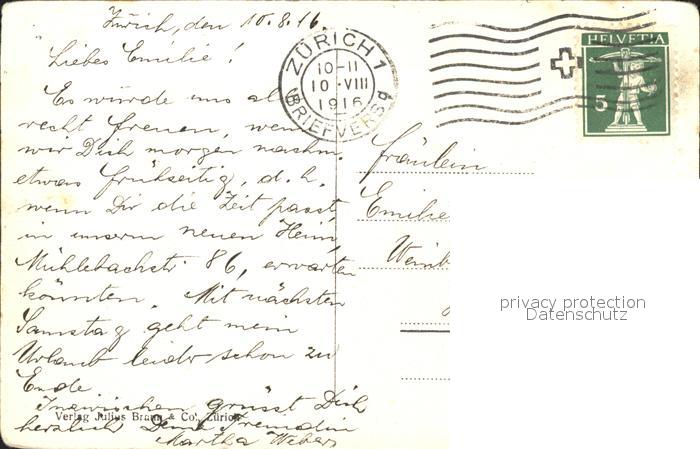 Zürich, den 10.8.16.
Liebes Emilie!
Es würde uns al
recht freuen, wenn
wir Dich morgen nachm.
etwas frühzeitig, d. h.
wenn Dir die Zeit passt,
in unserm neuen Heim,
Mühlebachstr. 86, erwarten
könnten. Mit nächsten
Samstag geht mein
Urlaub leider schon zu
Ende
Inzwischen grüsst Dich
herzlich Deine Freundin
Martha Weber
Verlag Julius Brann & Co., Zürich
ZÜRICH 1
10-11
10 VIII
1916
BRIEFVERS
HELVETIA
5
Fräulein
Emilie
privacy protection
Datenschutz